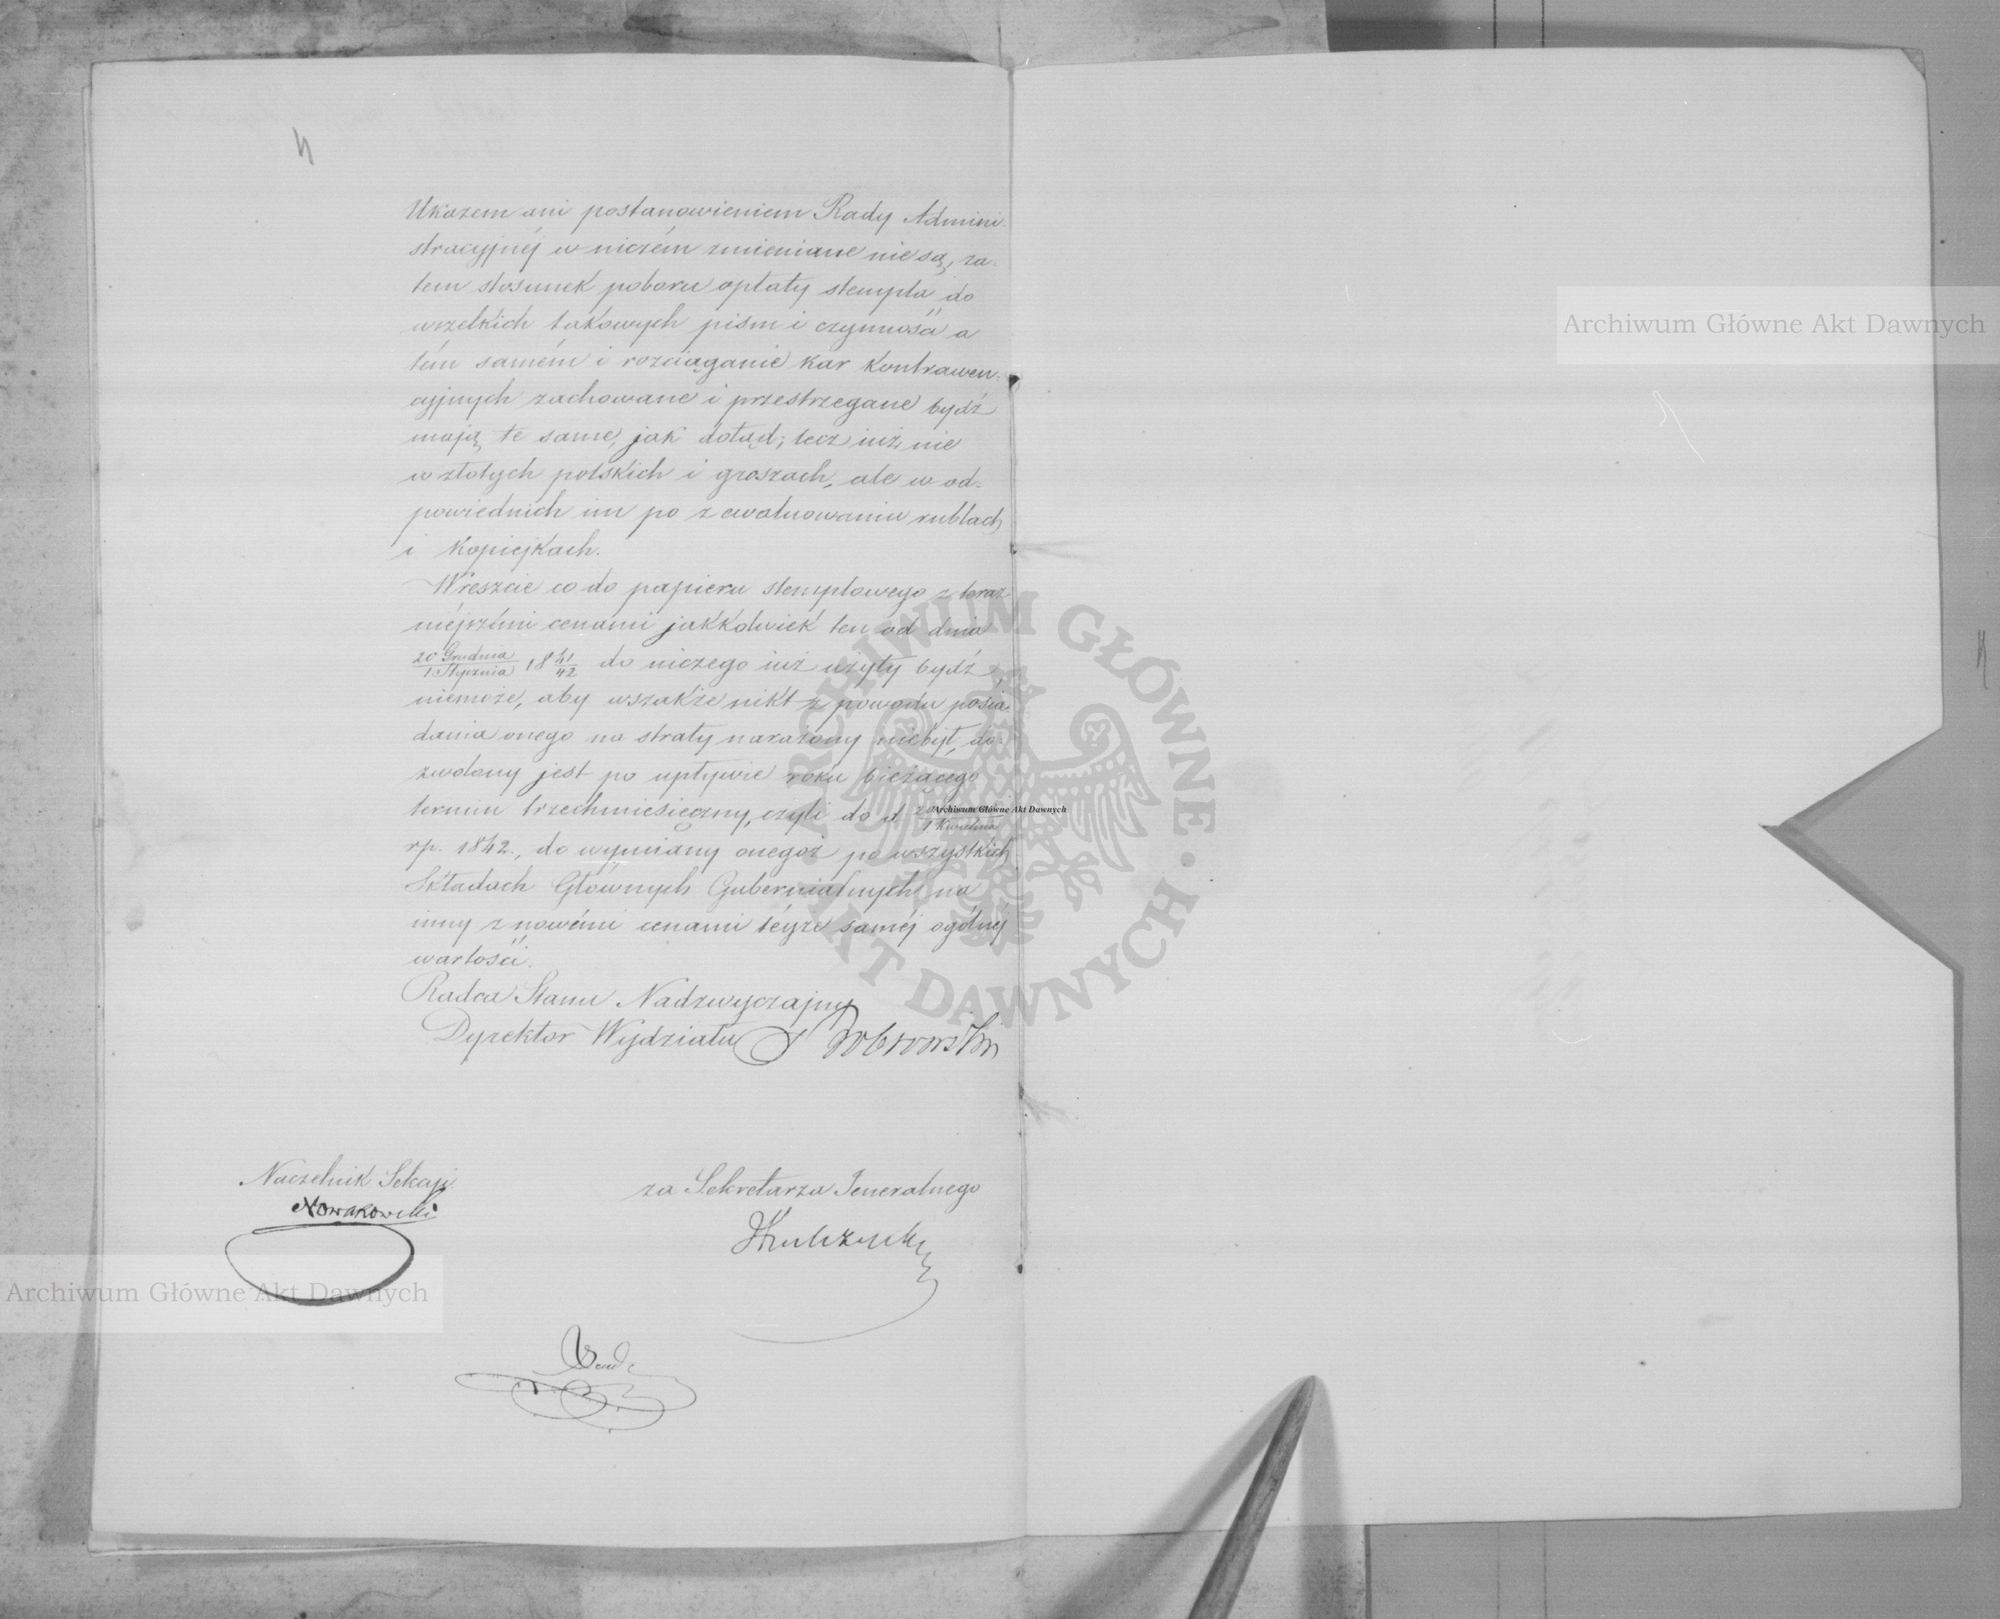 4
Ukazem ani postanowieniem Rady Admini-
stracyjnéj w niczém zmieniane nie są, za-
tem stosunek poboru opłaty stempla do
wszelkich takowych pism i czynności a
tém samém i rozciąganie kar kontrawen-
cyjnych zachowane i przestrzegane bydź
mają te same, jak dotąd; lecz iuż nie
w złotych polskich i groszach, ale w od-
powiednich im po zewaluowaniu rublach
i kopiejkach.
Wreszcie co do papieru stemplowego z teraz-
niéjszémi cenami jakkolwiek ten od dnia
20 Grudnia / 1 Stycznia 18 41/42 do niczego iuż użyty bydź
niemoże, aby wszakże nikt z powodu posia-
dania onego na straty narażony niebył, do-
zwolony jest po upływie roku bieżącego
termin trzechmiesięczny, czyli do d. 20 / 1 Kwietnia
rp. 1842., do wymiany onegoż po wszystkich
Składach Głównych Gubernialnych na
inny z nowémi cenami téyże saméj ogólnéj
wartości.
Radca Stanu Nadzwyczajny
Dyrektor Wydziału
Naczelnik Sekcji
Nowakowski
za Sekretarza Jeneralnego
Archiwum Główne Akt Dawnych
Archiwum Główne Akt Dawnych
Archiwum Główne Akt Dawnych
ARCHIWUM GŁÓWNE · AKT DAWNYCH ·